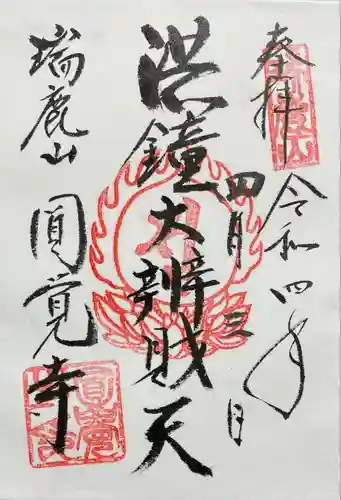 奉拝
令和四年
四月三日
洪鐘大辨財天
瑞鹿山
圓覚寺